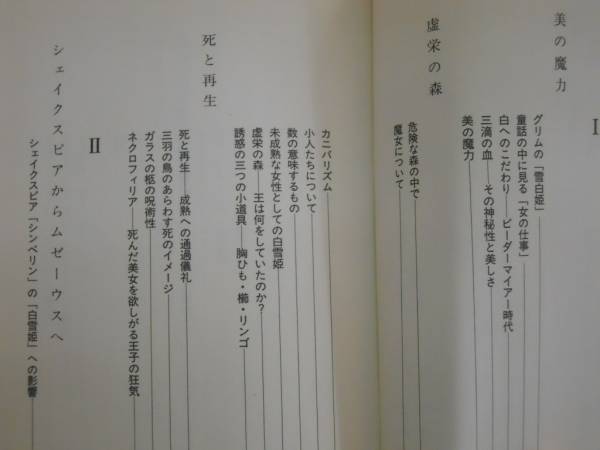 I
美の魔力
グリムの「雪白姫」
童話の中に見る「女の仕事」
白へのこだわり――ビーダーマイアー時代
三滴の血――その神秘性と美しさ
美の魔力
虚栄の森
危険な森の中で
魔女について
カニバリズム
小人たちについて
数の意味するもの
未成熟な女性としての白雪姫
虚栄の森――王は何をしていたのか?
誘惑の三つの小道具――胸ひも・櫛・リンゴ
死と再生
死と再生――成熟への通過儀礼
三羽の鳥のあらわす死のイメージ
ガラスの柩の呪術性
ネクロフィリア――死んだ美女を欲しがる王子の狂気
II
シェイクスピアからムゼーウスへ
シェイクスピア「シンベリン」の「白雪姫」への影響